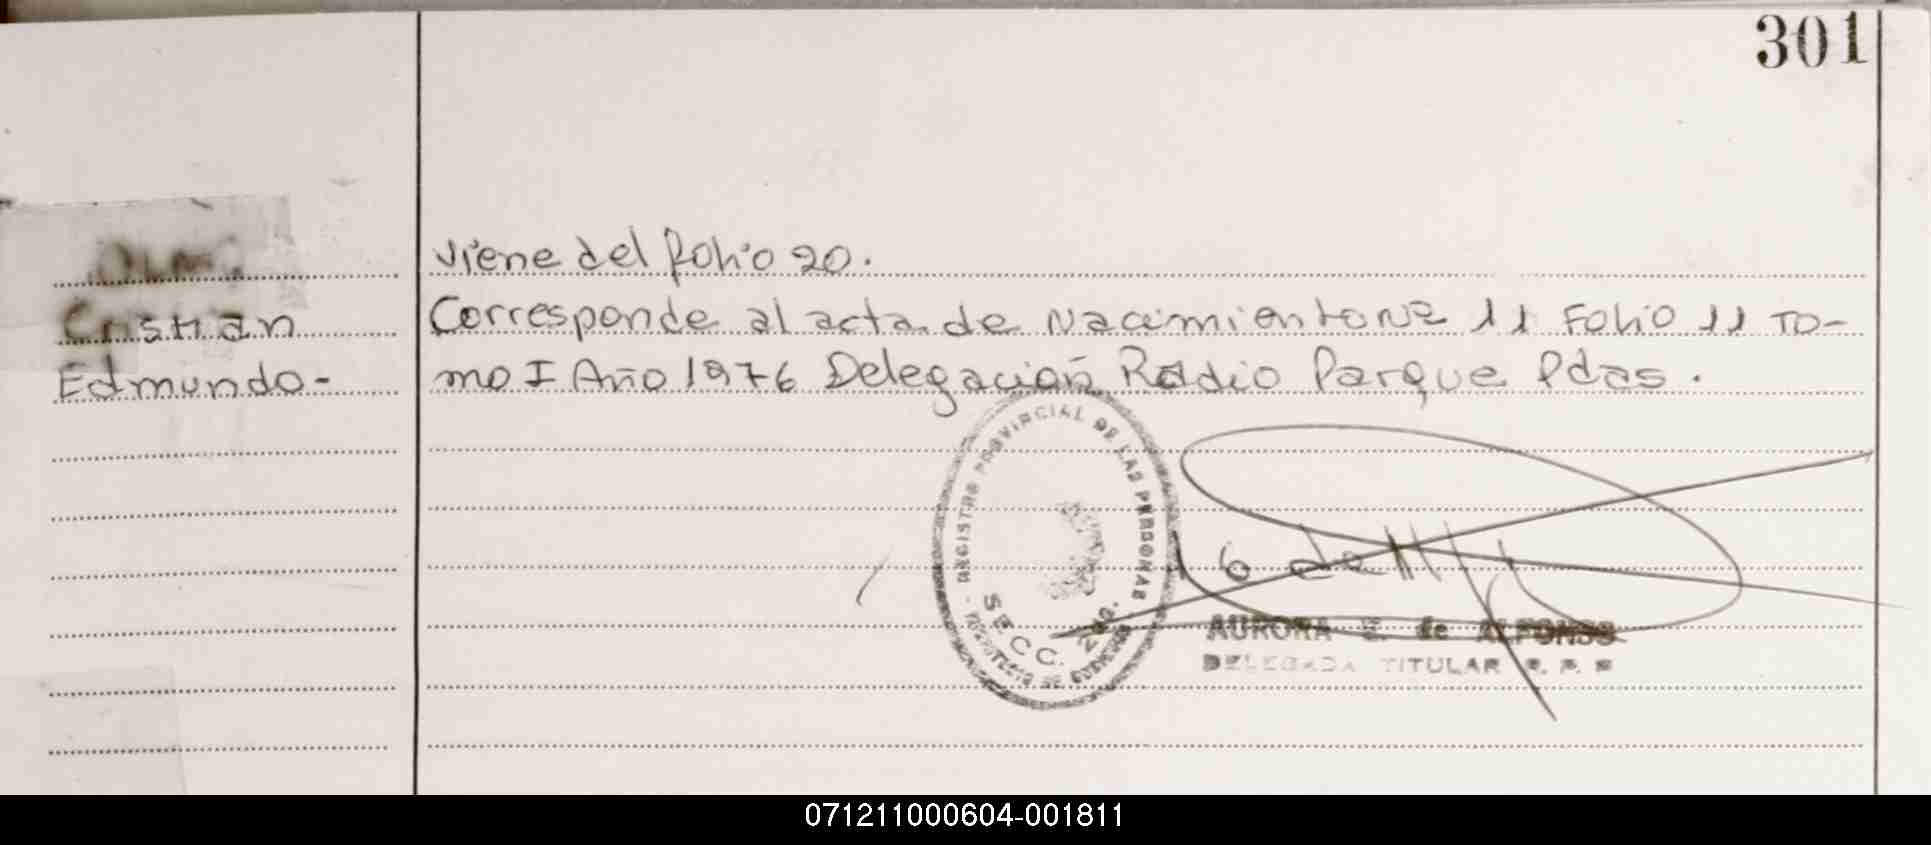 301
viene del folio 20.
Cristian
Corresponde al acta de Nacimiento Nº 11 Folio 11 To-
Edmundo-
mo I Año 1976 Delegación Radio Parque Pdas.
REGISTRO PROVINCIAL DE LAS PERSONAS
SECC. 2
AURORA E. de ALFONSO
DELEGADA TITULAR R. P. P
071211000604-001811